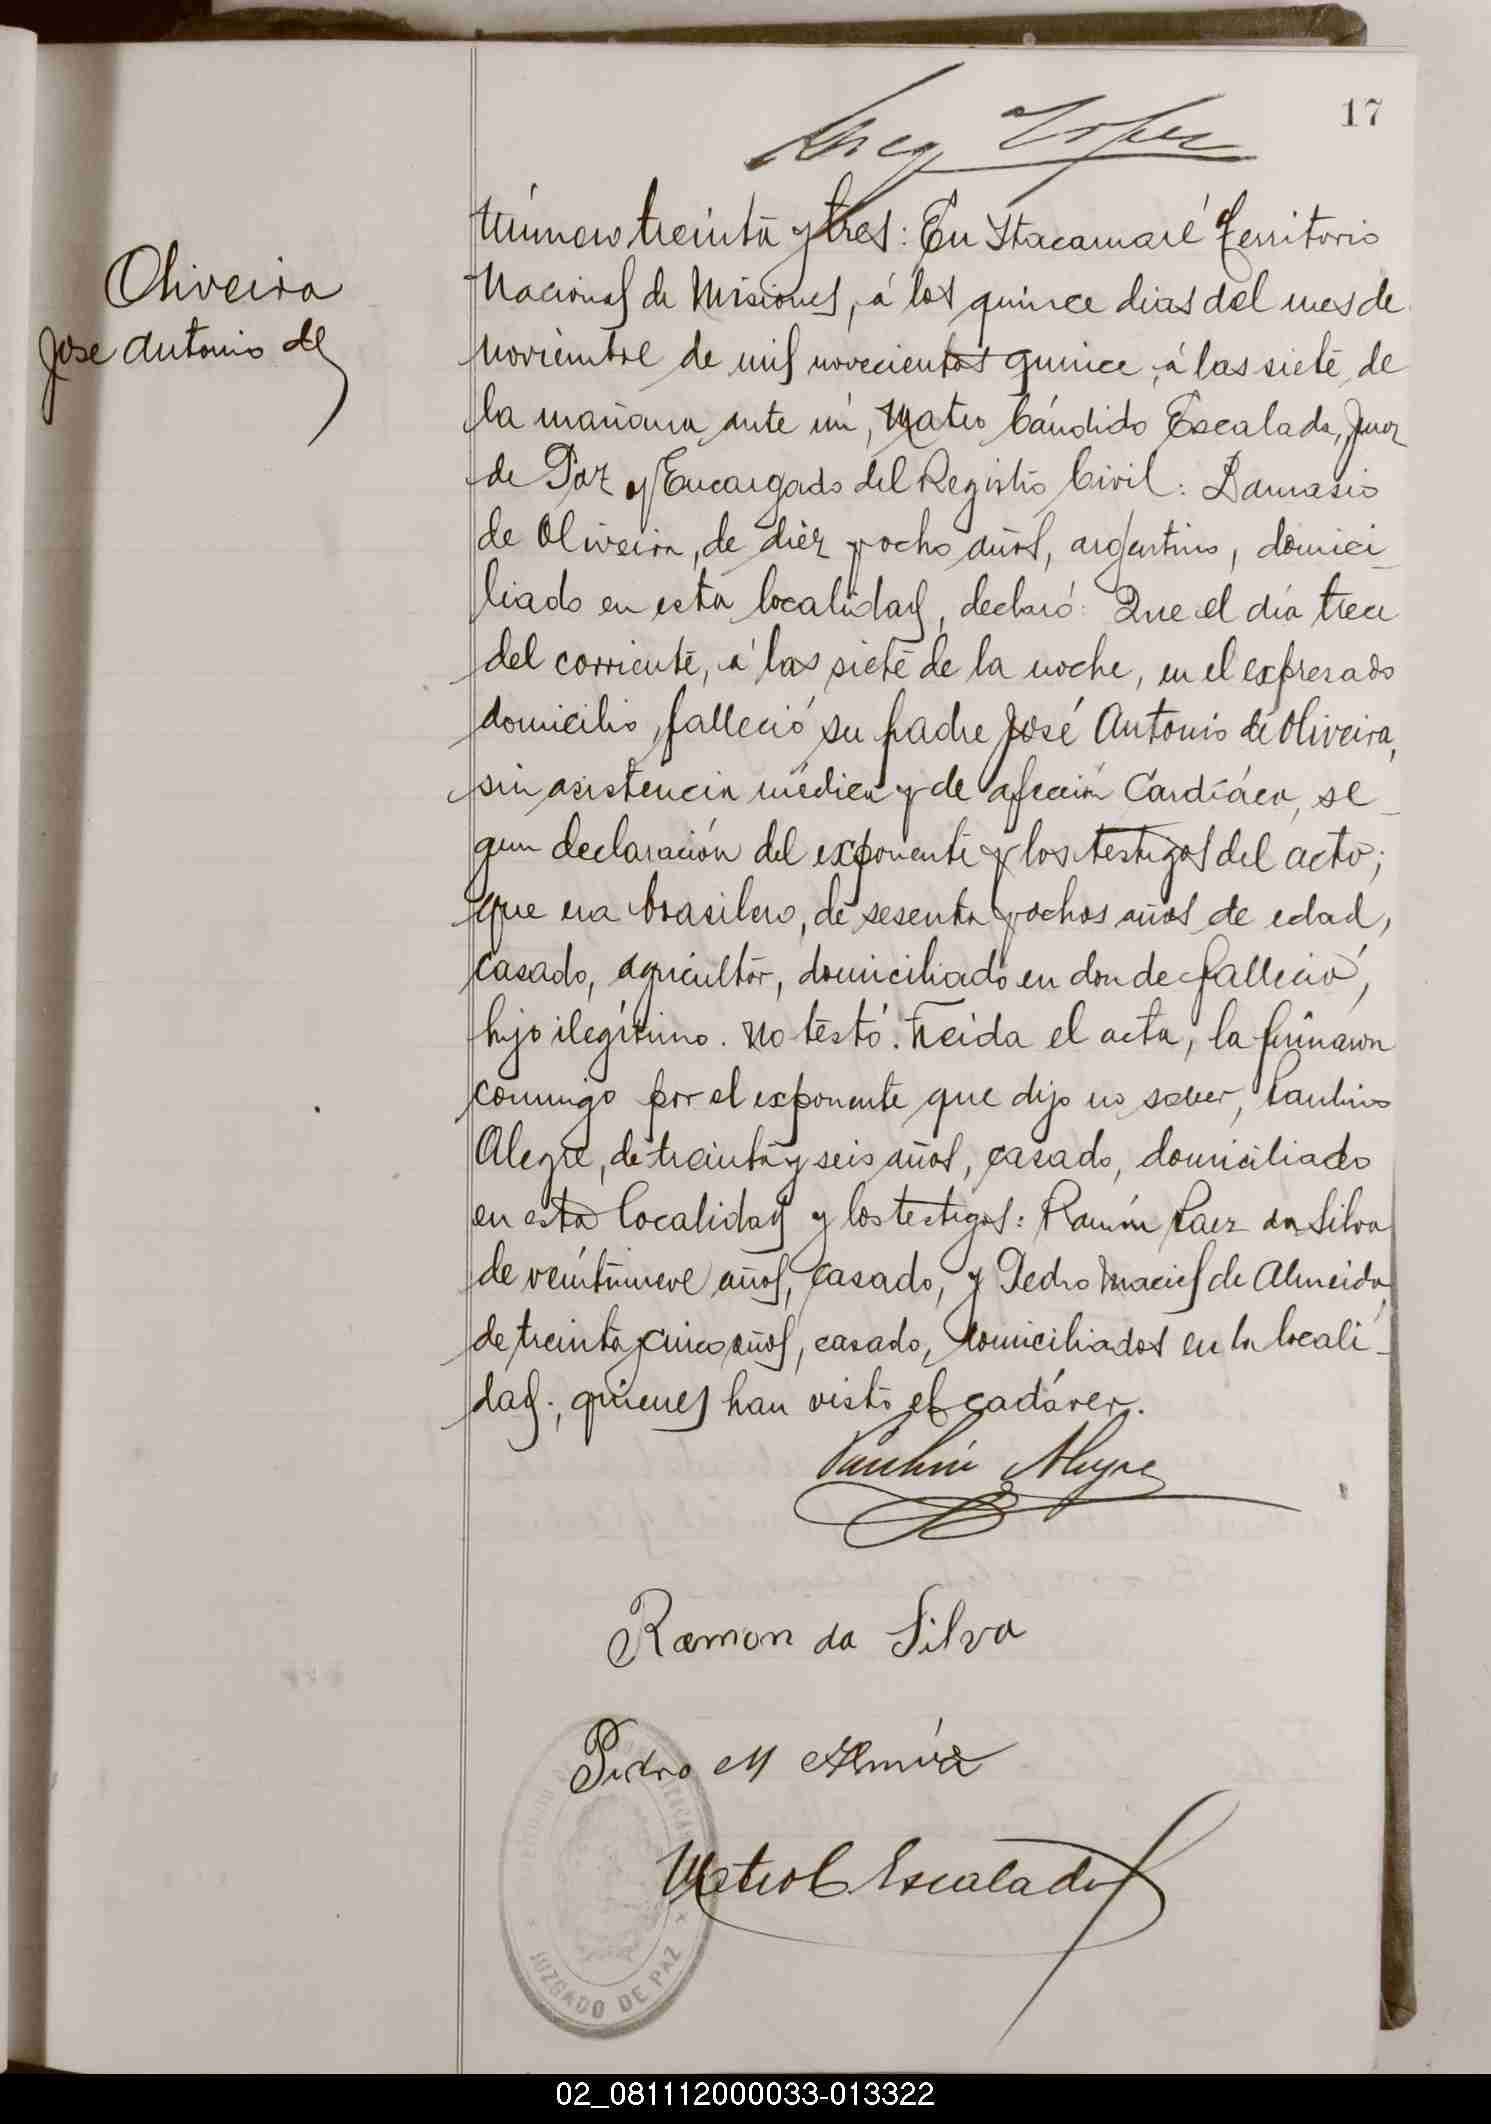 17
Oliveira
Jose Antonio de
Número treinta y tres: En Itacaruaré Territorio
Nacional de Misiones, á los quince dias del mes de
noviembre de mil novecientos quince, á las siete de
la mañana ante mí, Mateo Cándido Escalada, Juez
de Paz y Encargado del Registro Civil: Damasio
de Oliveira, de diez y ocho años, argentino, domici-
liado en esta localidad, declaró: Que el día trece
del corriente, á las siete de la noche, en el expresado
domicilio, falleció su padre José Antonio de Oliveira,
sin asistencia médica y de afección Cardíaca, se-
gun declaración del exponente y los testigos del acto;
que era brasilero, de sesenta y ochos años de edad,
casado, agricultor, domiciliado en donde falleció,
hijo ilegítimo. No testó. Leida el acta, la firmaron
conmigo por el exponente que dijo no saber, Paulino
Alegre, de treinta y seis años, casado, domiciliado
en esta localidad y los testigos: Ramón Paez da Silva
de veintinueve años, casado, y Pedro Maciel de Almeida
de treinta y cinco años, casado, domiciliados en la locali-
dad; quienes han visto el cadáver.
Paulino Alegre
Ramon da Silva
Pedro M Almeida
Mateo C Escalada
JUZGADO DE PAZ
02_081112000033-013322